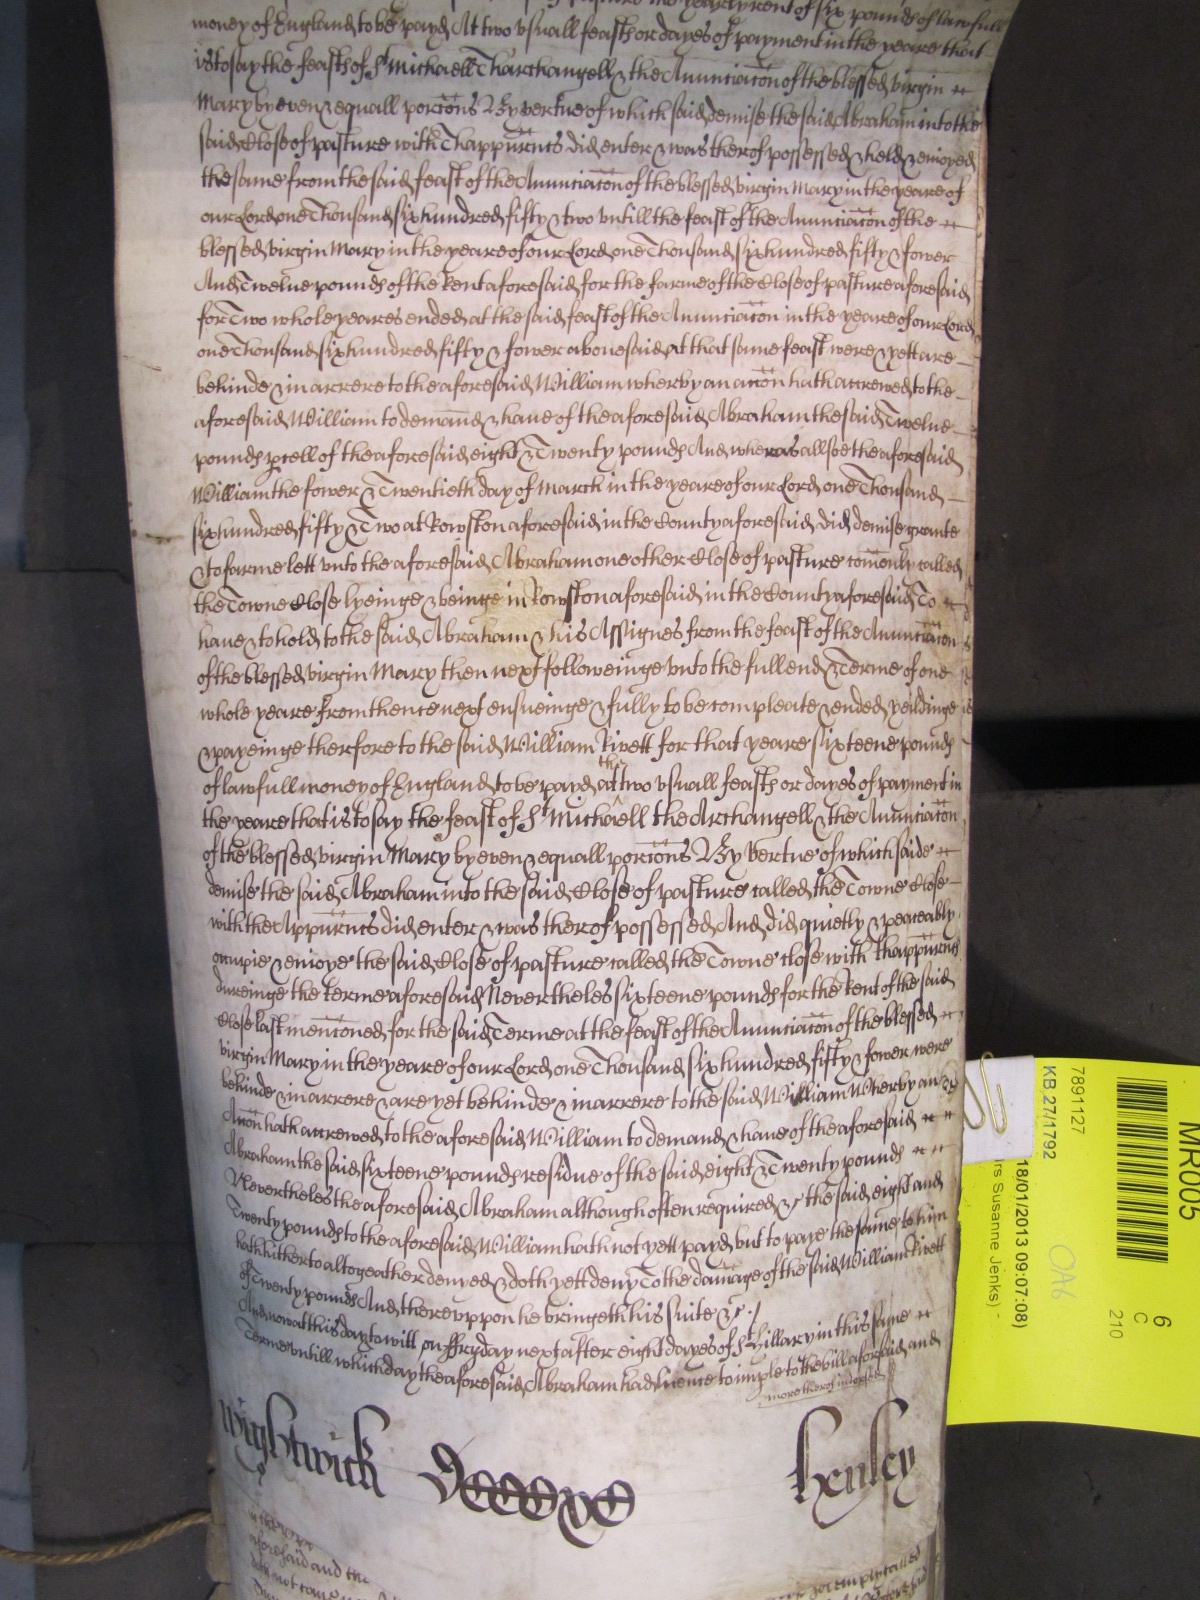 of pasture the yearely rent of six pounds of lawfull
money of England to be payd At two vsuall feasts or dayes of payment in the yeare that
is to say the feasts of St Michaell Tharchangell & the Anunciacon of the blessed virgin
Mary by even & equall porcons By vertue of which said demise the said Abraham into the
said Close of pasture with Thappurtncs did enter & was therof possessed & held & enioyed
the same from the said feast of the Anunciacon of the blessed virgin Mary in the yeare of
our Lord one Thousand six hundred fifty & two vntill the feast of the Anunciacon of the
blessed virgin Mary in the yeare of our Lord one Thousand six hundred fifty & fower
And Twelue pounds of the Rent aforesaid for the farme of the Close of pasture aforesaid
for Two whole yeares ended at the said feast of the Anunciacon in the yeare of our Lord
one Thousand six hundred fifty & fower abovesaid at that same feast were & yett are
behinde & in arrere to the aforesaid William wherby an accon hath accrewed to the
aforesaid William to demaund & haue of the aforesaid Abraham the said Twelue
pounds pcell of the aforesaid eight & Twenty pounds And wheras allsoe the aforesaid
William the fower & Twentieth day of March in the yeare of our Lord one Thousand
six hundred fifty & Two at Rowston aforesaid in the County aforesaid did demise grante
& to farme lett vnto the aforesaid Abraham one other Close of pasture comenly called
the Towne Close lyeinge & beinge in Rowston aforesaid in the County aforesaid To
haue & to hold to the said Abraham & his Assignes from the feast of the Anunciacon
of the blessed virgin Mary then next followeinge vnto the full end & Terme of one
whole yeare from thence next ensueinge & fully to be compleate & ended yeildinge
& payeinge therfore to the said William Rivett for that yeare sixteene pounds
of lawfull money of England to be payd at the two vsuall feasts or dayes of payment in
the yeare that is to say the feast of St Michaell the Archangell & the Anunciacon
of the blessed virgin Mary by even & equall porcons By vertue of which saide
demise the said Abraham into the said Close of pasture called the Towne Close
with the Appurtncs did enter & was therof possessed And did quietly & peaceably
occupie & enioye the said Close of pasture called the Towne close with thappurtncs
dureinge the terme aforesaid Nevertheles sixteene pounds for the Rent of the said
Close last mencōned for the said Terme at the feast of the Anunciacon of the blessed
virgin Mary in the yeare of our Lord one Thousand six hundred fifty & fower were
behinde & in arrere & are yet behinde & in arrere to the said William Wherby an
Accon hath accrewed to the aforesaid William to demand & haue of the aforesaid
Abraham the said sixteene pounds residue of the said eight & Twenty pounds
Nevertheles the aforesaid Abraham although often required &c the said eight and
Twenty pounds to the aforesaid William hath not yett payd but to paye the same to him
hath hitherto altogeather denyed & doth yett deny To the damage of the said William Rivett
of Twenty pounds And therevppon he bringeth his suite &c
And now at this day to witt on ffryday next after eight dayes of St Hillary in this same
Terme vntill which day the aforesaid Abraham had licence to imple to the bill aforesaid and
more therof indorsed
Wightwick
Henley
aforesaid and the
MR005
6
C
210
7891127
KB 27/1792
18/01/2013 09:07:08)
rs Susanne Jenks) -